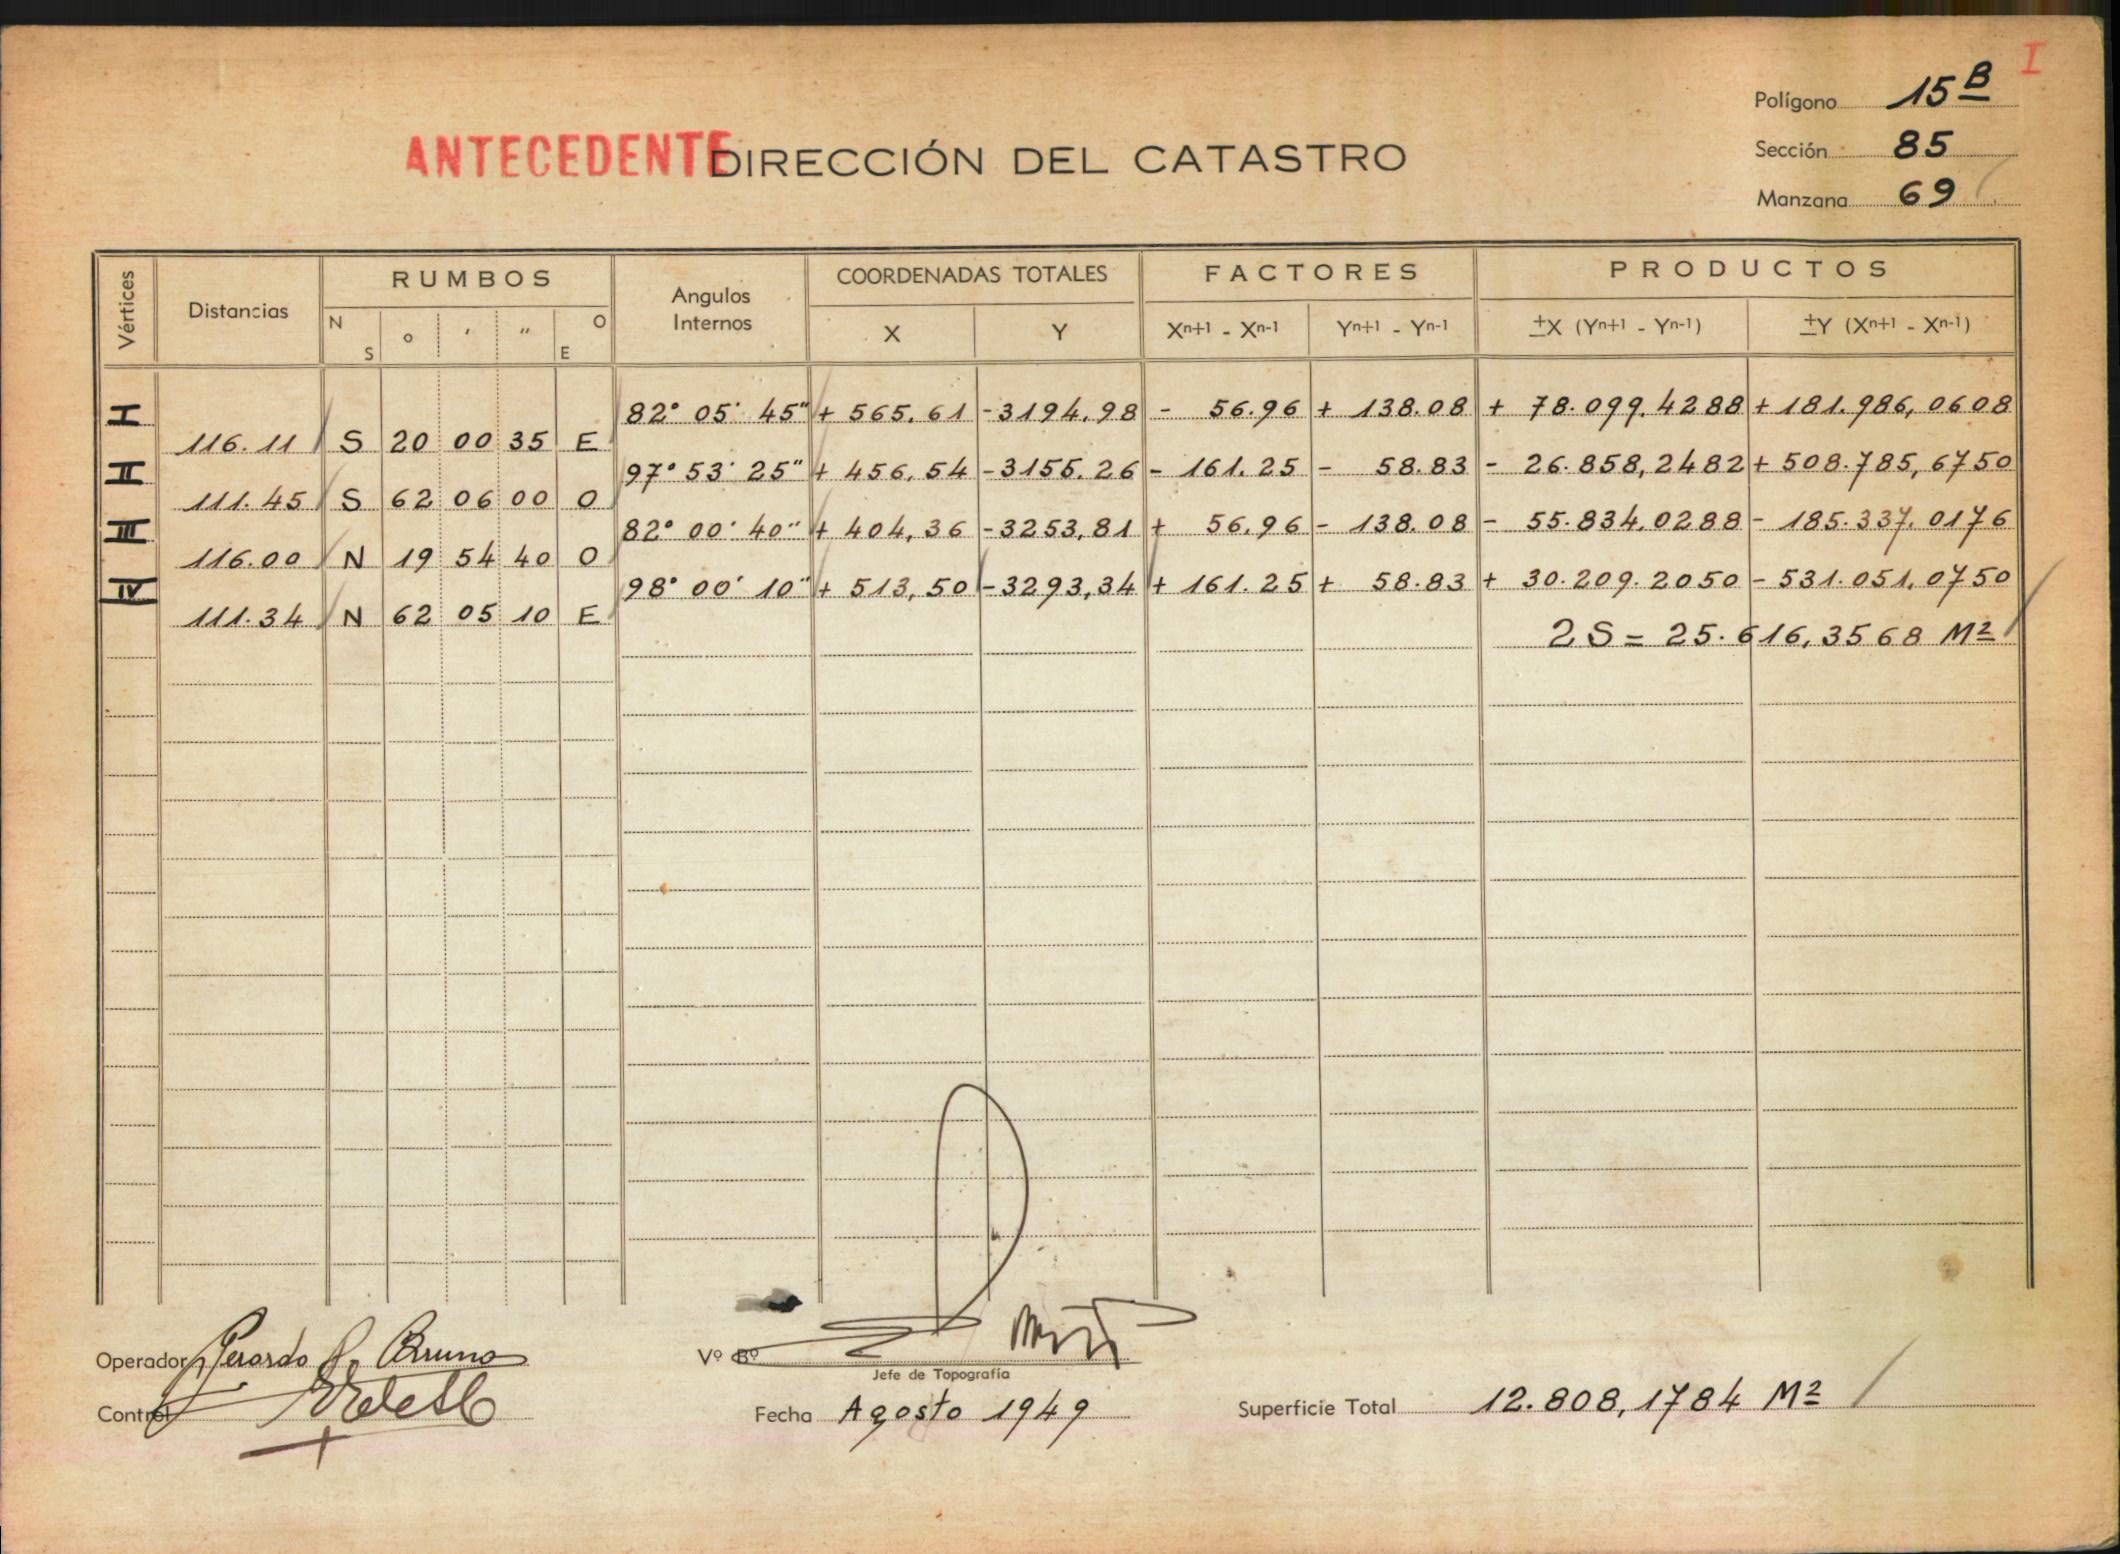 I
Polígono 15 B
ANTECEDENTE DIRECCIÓN DEL CATASTRO
Sección 85
Manzana 69
Vértices Distancias RUMBOS Angulos Internos COORDENADAS TOTALES FACTORES PRODUCTOS
N S ° ' " O E X Y Xn+1 - Xn-1 Yn+1 - Yn-1 ±X (Yn+1 - Yn-1) ±Y (Xn+1 - Xn-1)
I 82° 05' 45" + 565.61 -3194.98 - 56.96 + 138.08 + 78.099.4288 +181.986,0608
116.11 S 20 00 35 E
II 97° 53' 25" + 456,54 -3155.26 - 161.25 - 58.83 - 26.858,2482 + 508.785,6750
111.45 S 62 06 00 O
III 82° 00' 40" + 404,36 -3253,81 + 56.96 - 138.08 - 55.834,0288 - 185.337.0176
116.00 N 19 54 40 O
IV 98° 00' 10" + 513,50 -3293,34 + 161.25 + 58.83 + 30.209.2050 - 531.051,0750
111.34 N 62 05 10 E
2S = 25.616,3568 M2
Operador Gerardo Bruno
Vº Bº
Jefe de Topografía
Control
Fecha Agosto 1949
Superficie Total 12.808,1784 M2